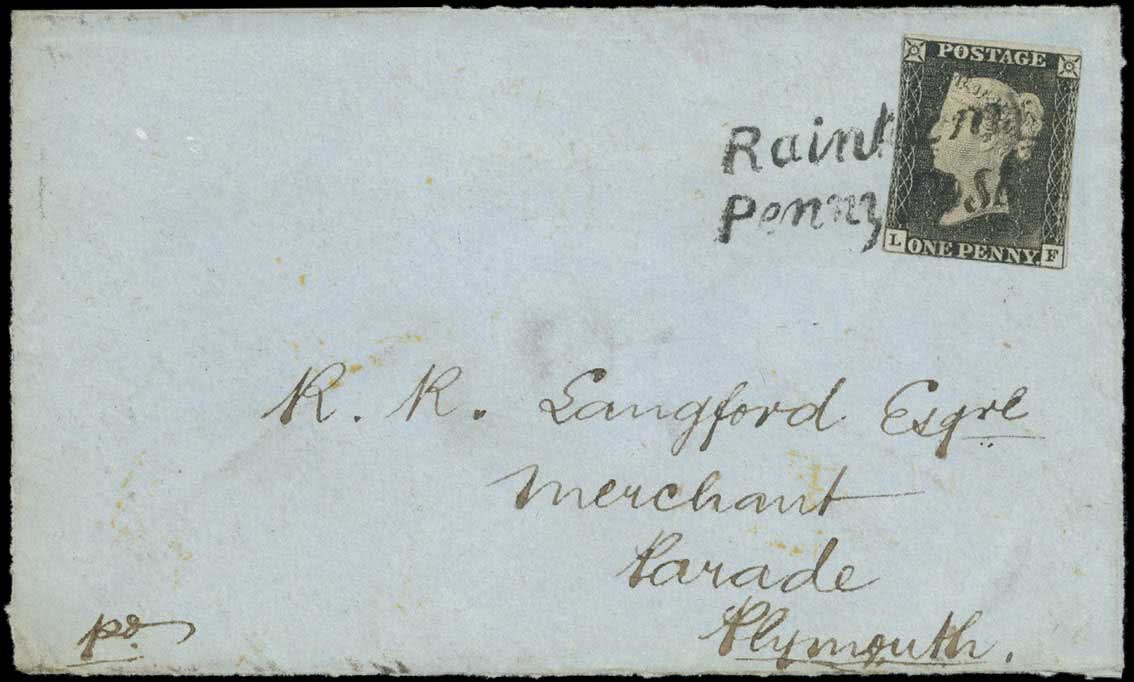 POSTAGE
Raint
Penny
L ONE PENNY. F
R. R. Langford Esqre
Merchant
Parade
Plymouth.
pd